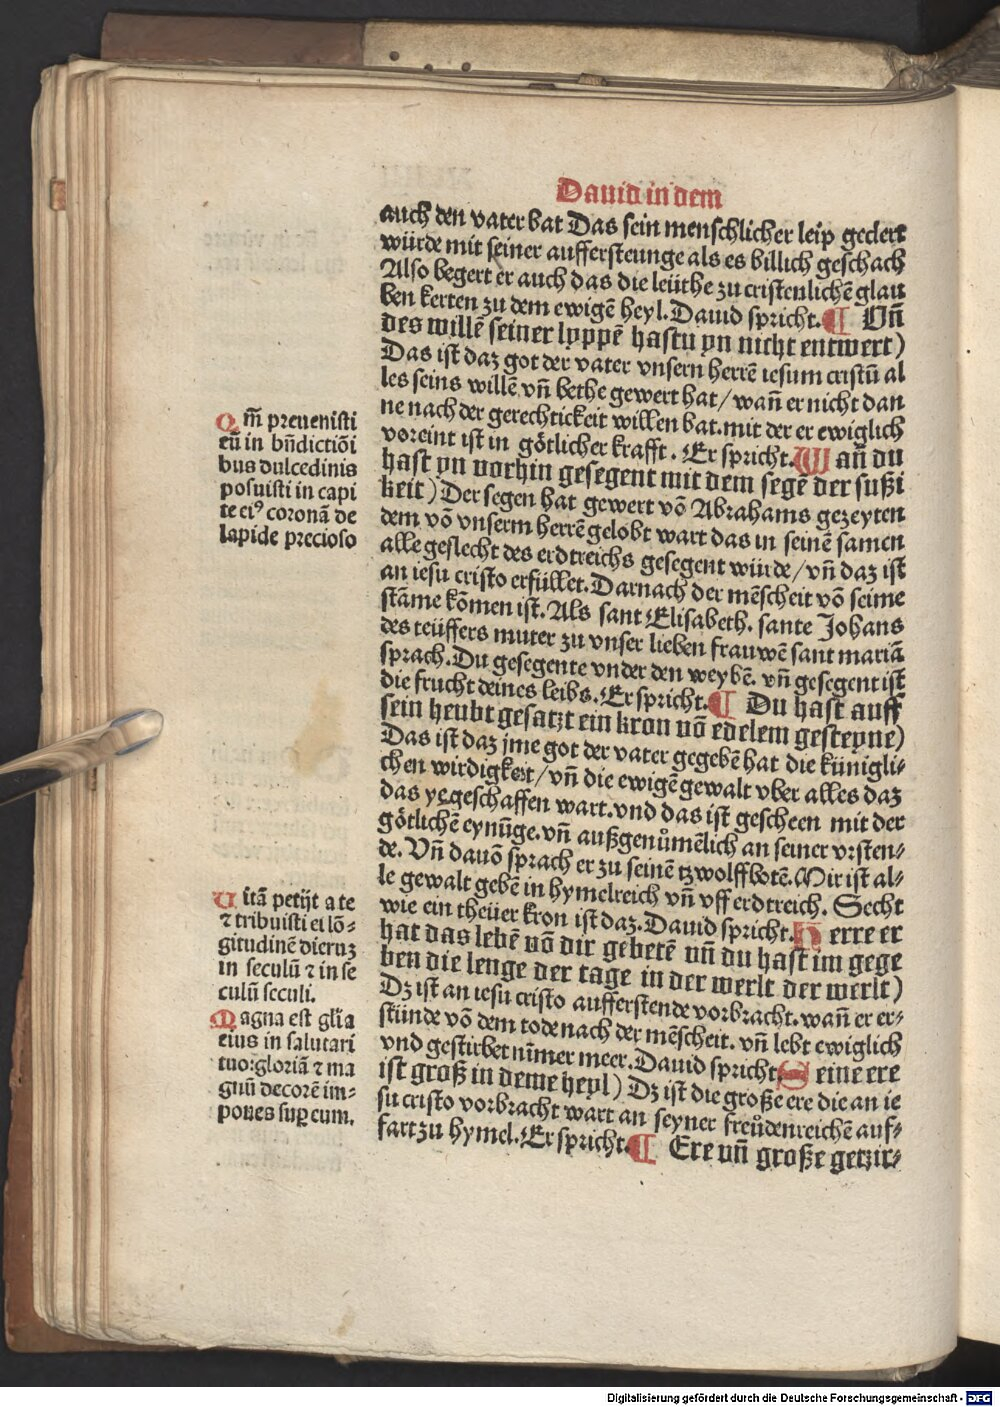 Dauid in dem
auch den vater bat Das sein menschlicher leip gedert
würde mit seiner aufferstennge als es billich geschach
Also begert er auch das die leüthe zu cristenlichē glau
ben kerten zu dem ewigē heyl. Dauid spricht. ¶ Vn̄
des willē seiner lyppē hastu yn nicht entwert)
Das ist daz got der vater vnsern herrē iesum cristū al
les seins willē vn̄ bethe gewert hat / wan̄ er nicht dan
ne nach der gerechtickeit willen bat. mit der er ewiglich
voreint ist in götlicher krafft. Er spricht. Wan̄ du
hast yn vorhin gesegent mit dem segē der sußi
keit) Der segen hat gewert vō Abrahams gezeyten
dem vō vnserm herrē gelobt wart das in seinē samen
alle geslecht des erdtreichs gesegent würde / vn̄ daz ist
an iesu cristo erfüllet. Darnach der mēscheit vō seime
stāme kōmen ist. Als sant Elisabeth. sante Johans
des teüffers muter zu vnser lieben frauwē sant mariā
sprach. Du gesegente vnder den weybē. vn̄ gesegent ist
die frucht deines leibs. Er spricht. ¶ Du hast auff
sein heubt gesatzt ein kron vō edelem gesteyne)
Das ist daz jme got der vater gegebē hat die künigli-
chen wirdigkeit / vn̄ die ewigē gewalt vber alles daz
das ye geschaffen wart. vnd das ist gescheen mit der
götlichē eynūge. vn̄ außgenůmēlich an seiner vrsten-
de. Vn̄ dauō sprach er zu seinē tzwolffbotē. Mir ist al-
le gewalt gebē in hymelreich vn̄ vff erdtreich. Secht
wie ein theüer kron ist daz. Dauid spricht. Herre er
hat das lebē vō dir gebetē vn̄ du hast im gege
ben die lenge der tage in der werlt der werlt)
Dz ist an iesu cristo aufferstende vorbracht. wan̄ er er-
stünde vō dem tode nach der mēscheit. vn̄ lebt ewiglich
vnd gestirbet nīmer meer. Dauid spricht Seine ere
ist groß in deme heyl) Dz ist die große ere die an ie
su cristo vorbracht wart an seyner freůdenreichē auf-
fart zu hymel. Er spricht. ¶ Ere vn̄ große getzir-
Qm̄ preuenisti
eū in bn̄dictiōi
bus dulcedinis
posuisti in capi
te eiꝰ coronā de
lapide precioso
Uitā petijt a te
⁊ tribuisti ei lō-
gitudinē dieruꝫ
in seculū ⁊ in se
culū seculi.
Magna est gl̄ia
eius in salutari
tuo: gloriā ⁊ ma
gnū decorē im-
pones suꝑ eum.
Digitalisierung gefördert durch die Deutsche Forschungsgemeinschaft - DFG